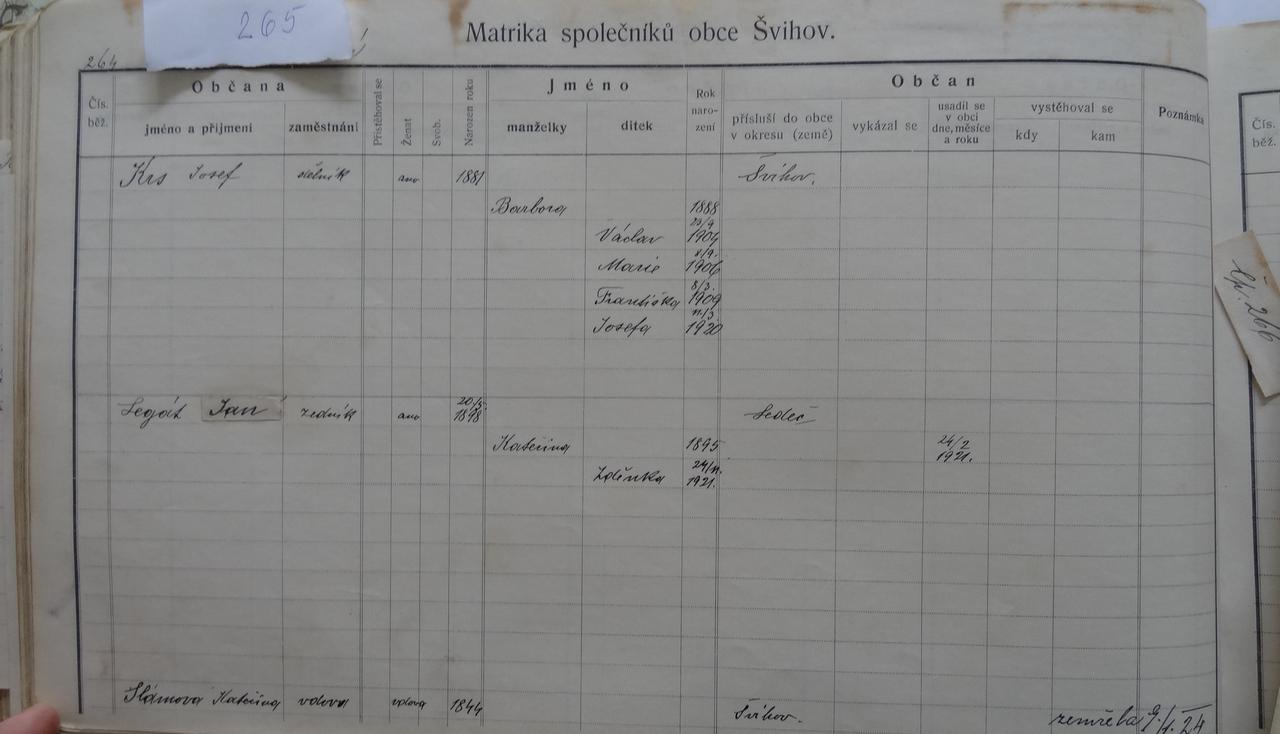 265
Matrika společníků obce Švihov.
264
Občana Jméno Občan
Čís. běž. jméno a přijmení zaměstnání Přistěhoval se Ženat Svob. Narozen roku manželky dítek Rok naro- zení přísluší do obce v okresu (země) vykázal se usadil se v obci dne, měsíce a roku vystěhoval se kdy kam Poznámka
Čís. běž.
Krs Josef dělník ano 1881 Švihov.
Barbora 1888
Václav 23/9 1904
Marie 8/9. 1906
Františka 8/3. 1909
Josefa 11/3 1920
Čp. 266
Legát Jan zedník ano 20/5. 1898 Sedeč
Kateřina 1895 24/2 1921.
Zděnka 24/11. 1921.
Slámova Kateřina vdova vdova 1844 Švihov. zemřela 9./1. 24